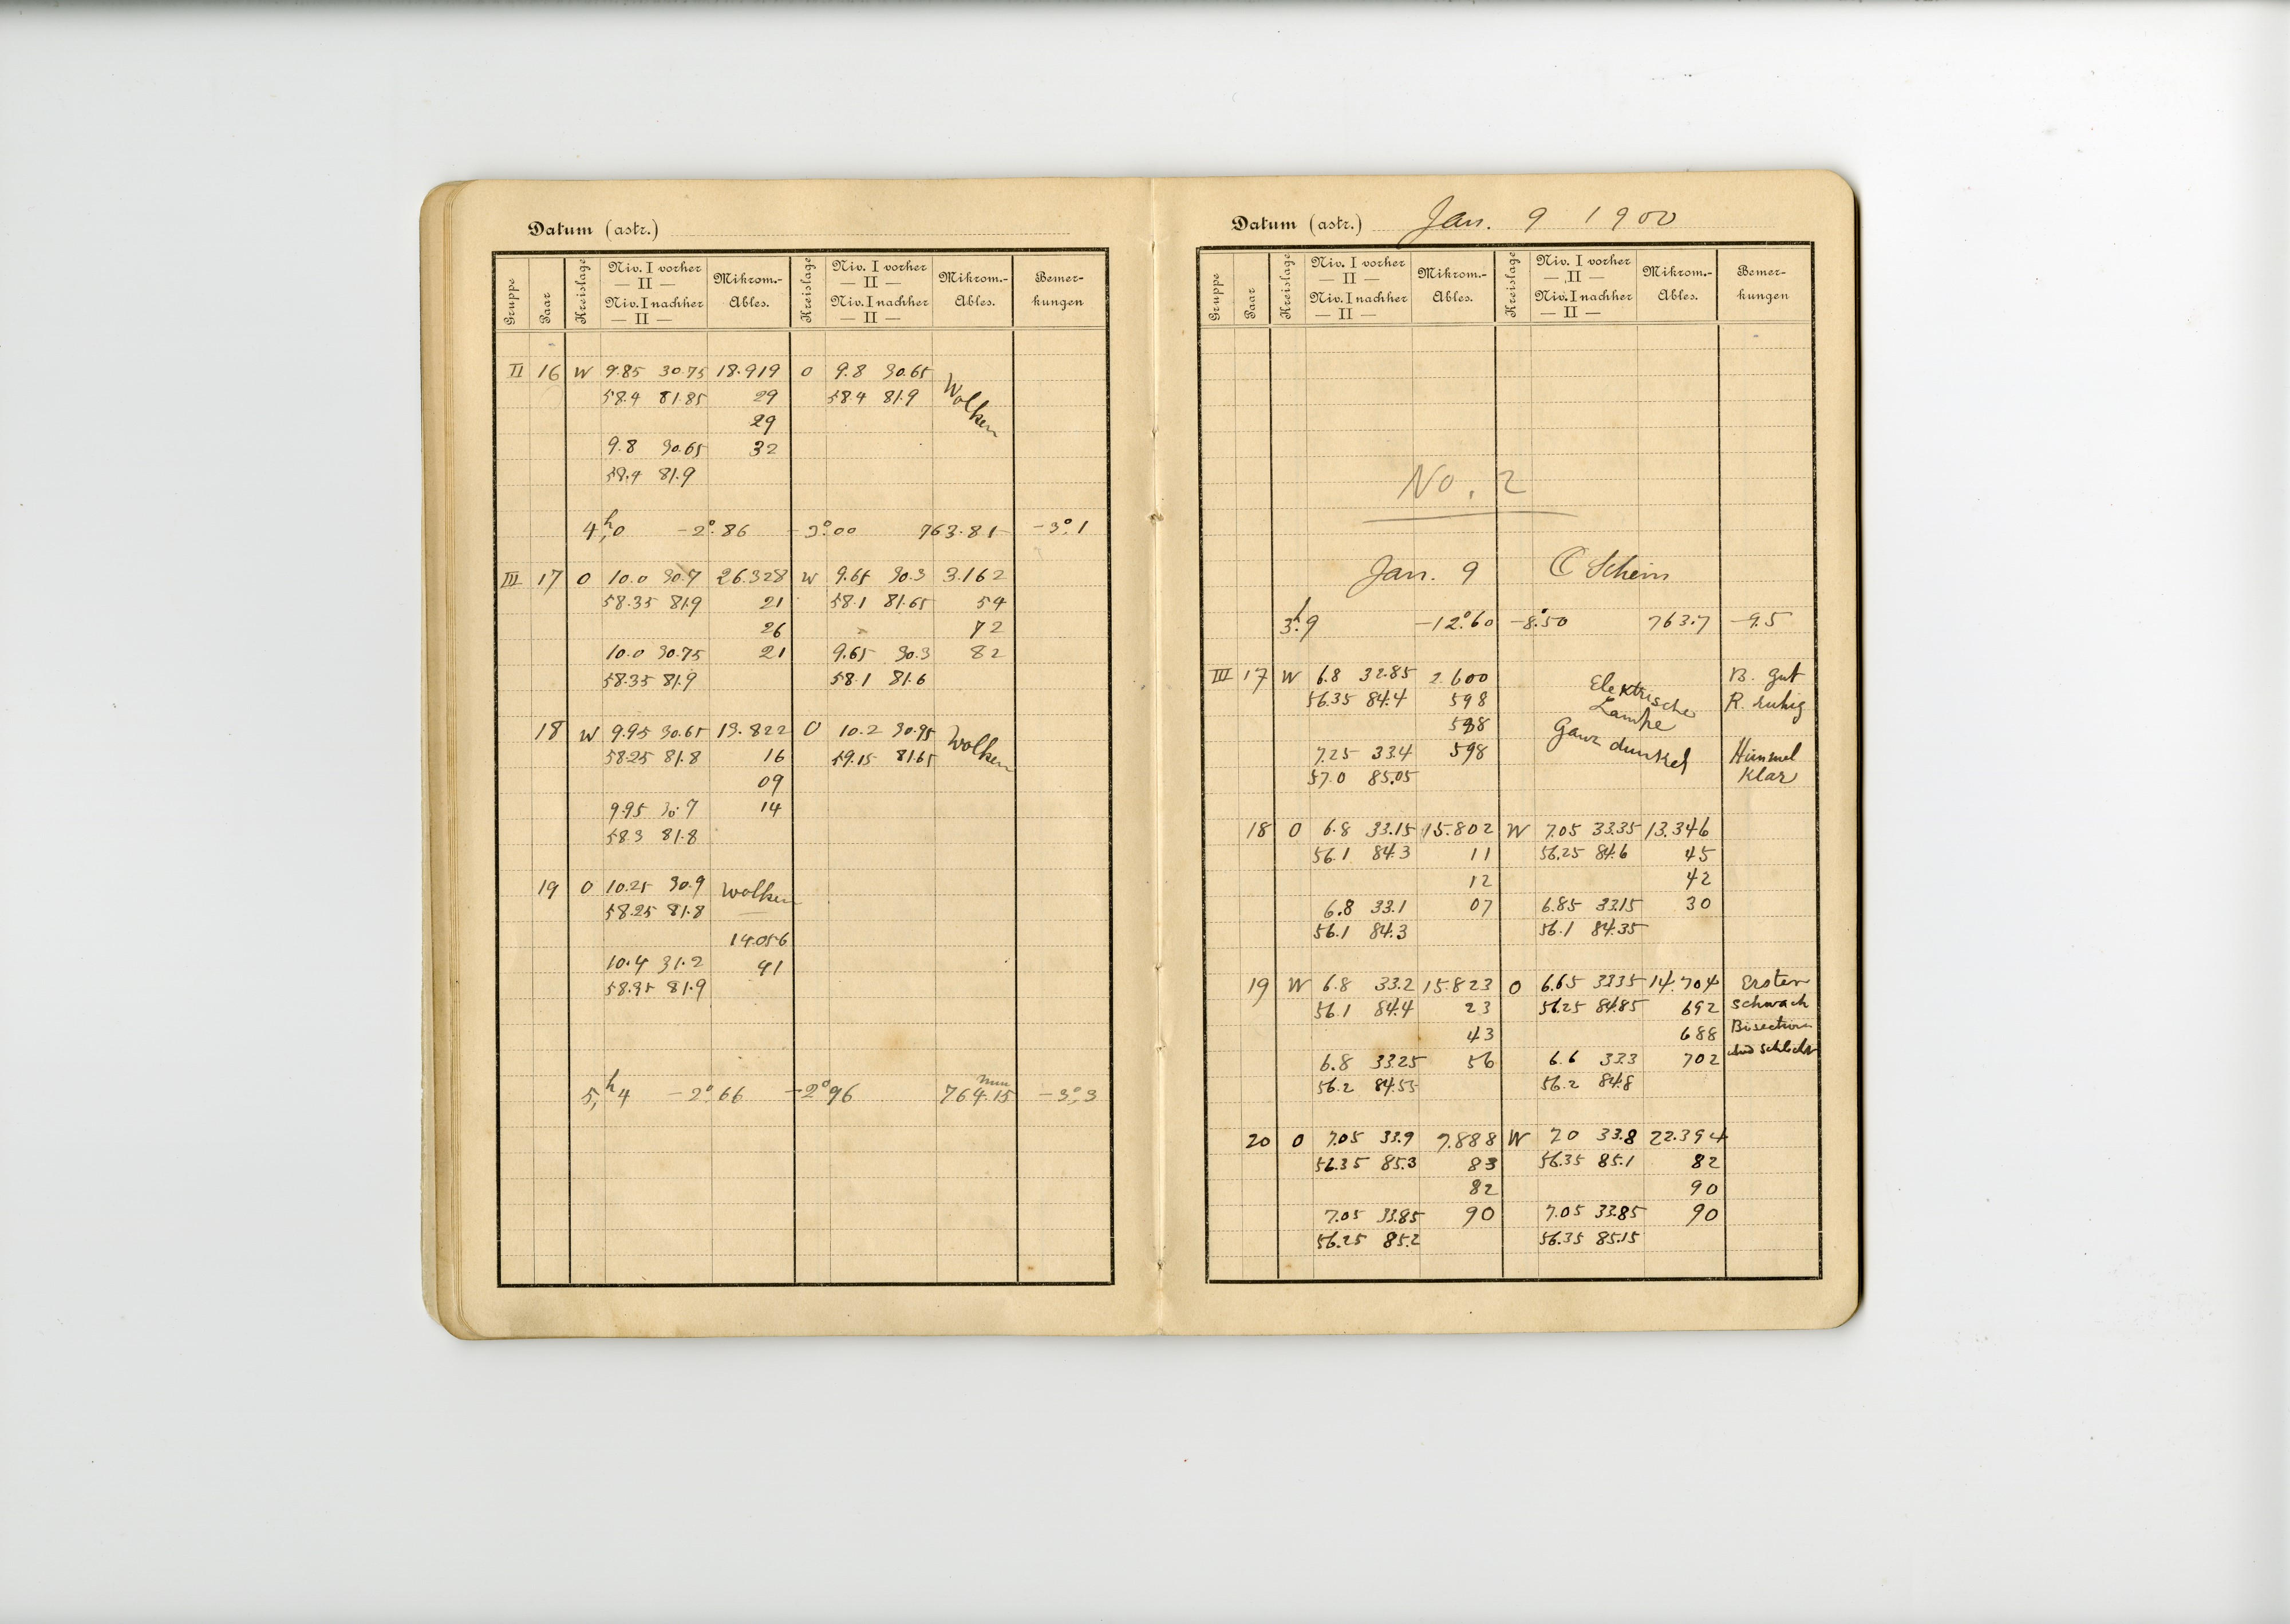 Datum (astr.)
Gruppe Paar Kreislage Niv. I vorher Mikrom.- Kreislage Niv. I vorher Mikrom.- Bemer-
— II — — II —
Niv. I nachher Ables. Niv. I nachher Ables. kungen
— II — — II —
II 16 W 9.85 30.75 18.919 O 9.8 30.65 Wolken
58.4 81.85 29 58.4 81.9
29
9.8 30.65 32
58.4 81.9
4h,0 -2°.86 -3°.00 763.81 -3°.1
III 17 O 10.0 30.7 26.328 W 9.65 30.3 3.162
58.35 81.9 21 58.1 81.65 54
26 72
10.0 30.75 21 9.65 30.3 82
58.35 81.9 58.1 81.6
18 W 9.95 30.65 13.822 O 10.2 30.95 Wolken
58.25 81.8 16 59.15 81.65
09
9.95 30.7 14
58.3 81.8
19 O 10.25 30.9 Wolken
58.25 81.8 —
14.056
10.4 31.2 41
58.35 81.9
5h,4 -2°.66 -2°.96 764.15 mm -3°.3
Datum (astr.) Jan. 9 1900
Gruppe Paar Kreislage Niv. I vorher Mikrom.- Kreislage Niv. I vorher Mikrom.- Bemer-
— II — — II —
Niv. I nachher Ables. Niv. I nachher Ables. kungen
— II — — II —
No. 2
Jan. 9 ☾ Schein
3h.9 -12°.60 -8°.50 763.7 -9.5
III 17 W 6.8 32.85 2.600 Elektrische B. gut
56.35 84.4 598 Lampe R. ruhig
598 Ganz dunkel
7.25 33.4 598 Himmel
57.0 85.05 Klar
18 O 6.8 33.15 15.802 W 7.05 33.35 13.346
56.1 84.3 11 56.25 84.6 45
12 42
6.8 33.1 07 6.85 33.15 30
56.1 84.3 56.1 84.35
19 W 6.8 33.2 15.823 O 6.65 33.35 14.704 Erster
56.1 84.4 23 56.25 84.85 692 schwach
43 688 Bisection
6.8 33.25 56 6.6 33.3 702 schlecht
56.2 84.55 56.2 84.8
20 O 7.05 33.9 7.888 W 7.0 33.8 22.394
56.35 85.3 83 56.35 85.1 82
82 90
7.05 33.85 90 7.05 33.85 90
56.25 85.2 56.35 85.15